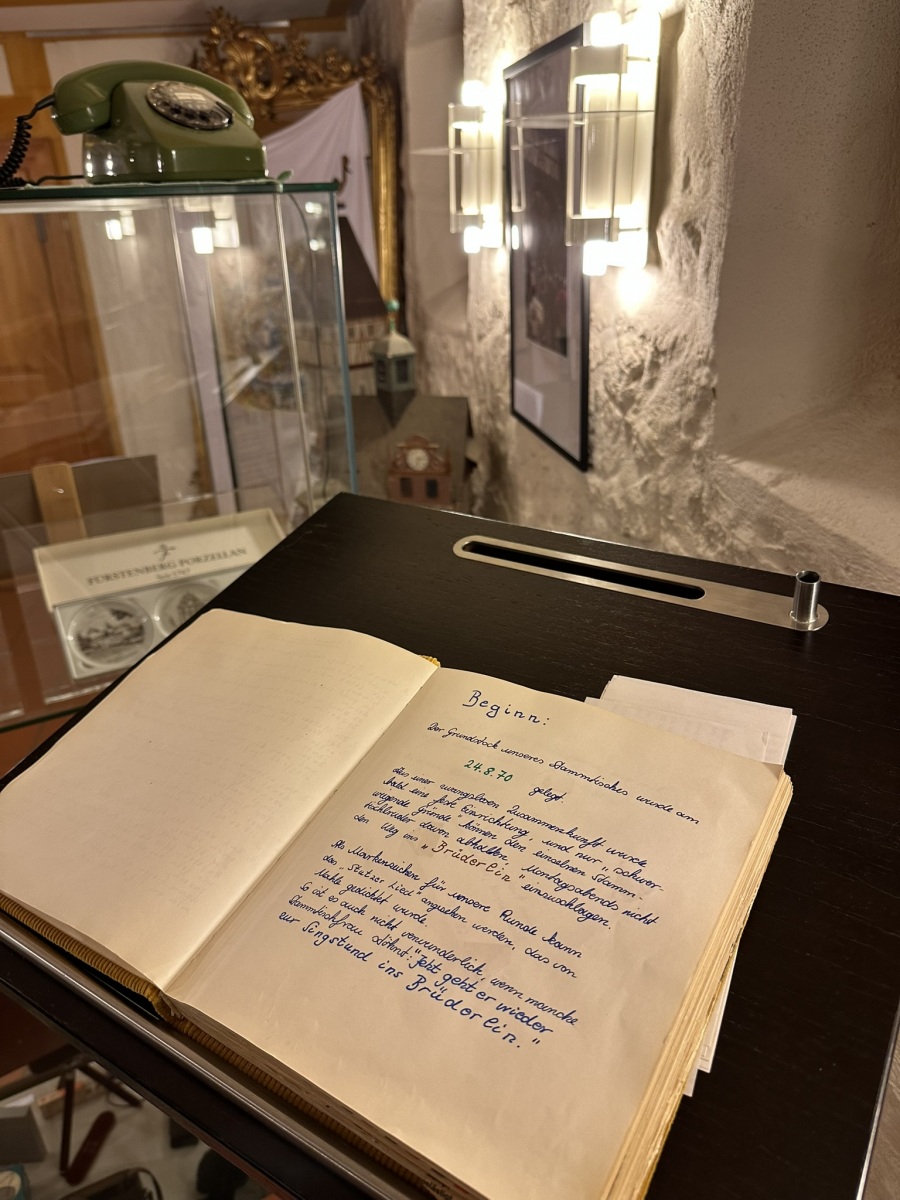 FÜRSTENBERG PORZELLAN
Beginn:
Der Grundstock unseres Stammtisches wurde am
24.8.70 gelegt.
Aus einer zwanglosen Zusammenkunft wurde
bald eine feste Einrichtung, und nur "schwer-
wiegende Gründe" können den einzelnen Stamm-
tischbruder davon abhalten, Montagsabends nicht
den Weg ins "Brüderlein" einzuschlagen.
Als Markenzeichen für unsere Runde kann
das "Stutzer Lied" angesehen werden, das von
gedichtet wurde.
So ist es auch nicht verwunderlich, wenn manche
Stammtischfrau stöhnt: "Jetzt geht er wieder
zur Singstund ins Brüderlein."